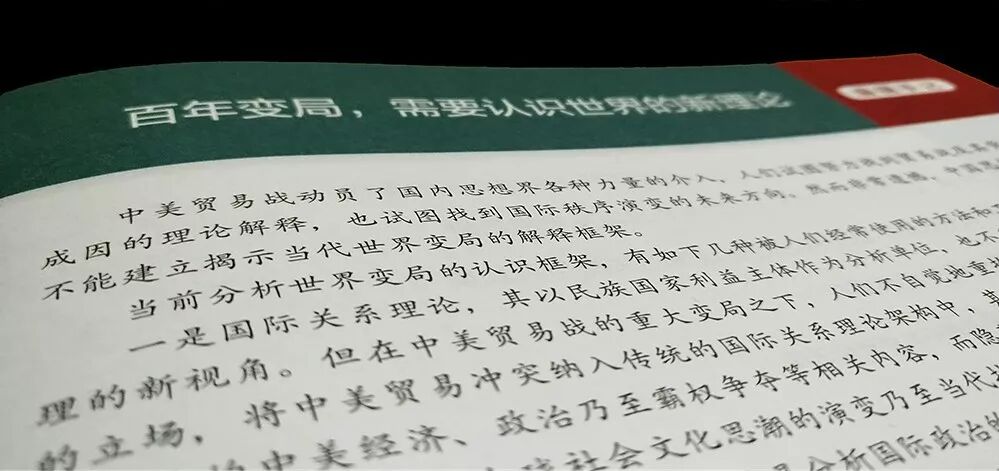 百年变局，需要认识世界的新理论
中美贸易战动员了国内思想界各种力量的介入，人们试图努力找到贸易战及其
成因的理论解释，也试图找到国际秩序演变的未来方向。然而非常遗憾，中国思
不能建立揭示当代世界变局的解释框架。
当前分析世界变局的认识框架，有如下几种被人们经常使用的方法和
一是国际关系理论，其以民族国家利益主体作为分析单位，也不
理的新视角。但在中美贸易战的重大变局之下，人们不自觉地重
的立场，将中美贸易冲突纳入传统的国际关系理论架构中，其
中美经济、政治乃至霸权争夺等相关内容，而隐
社会文化思潮的演变乃至当代
分析国际政治的